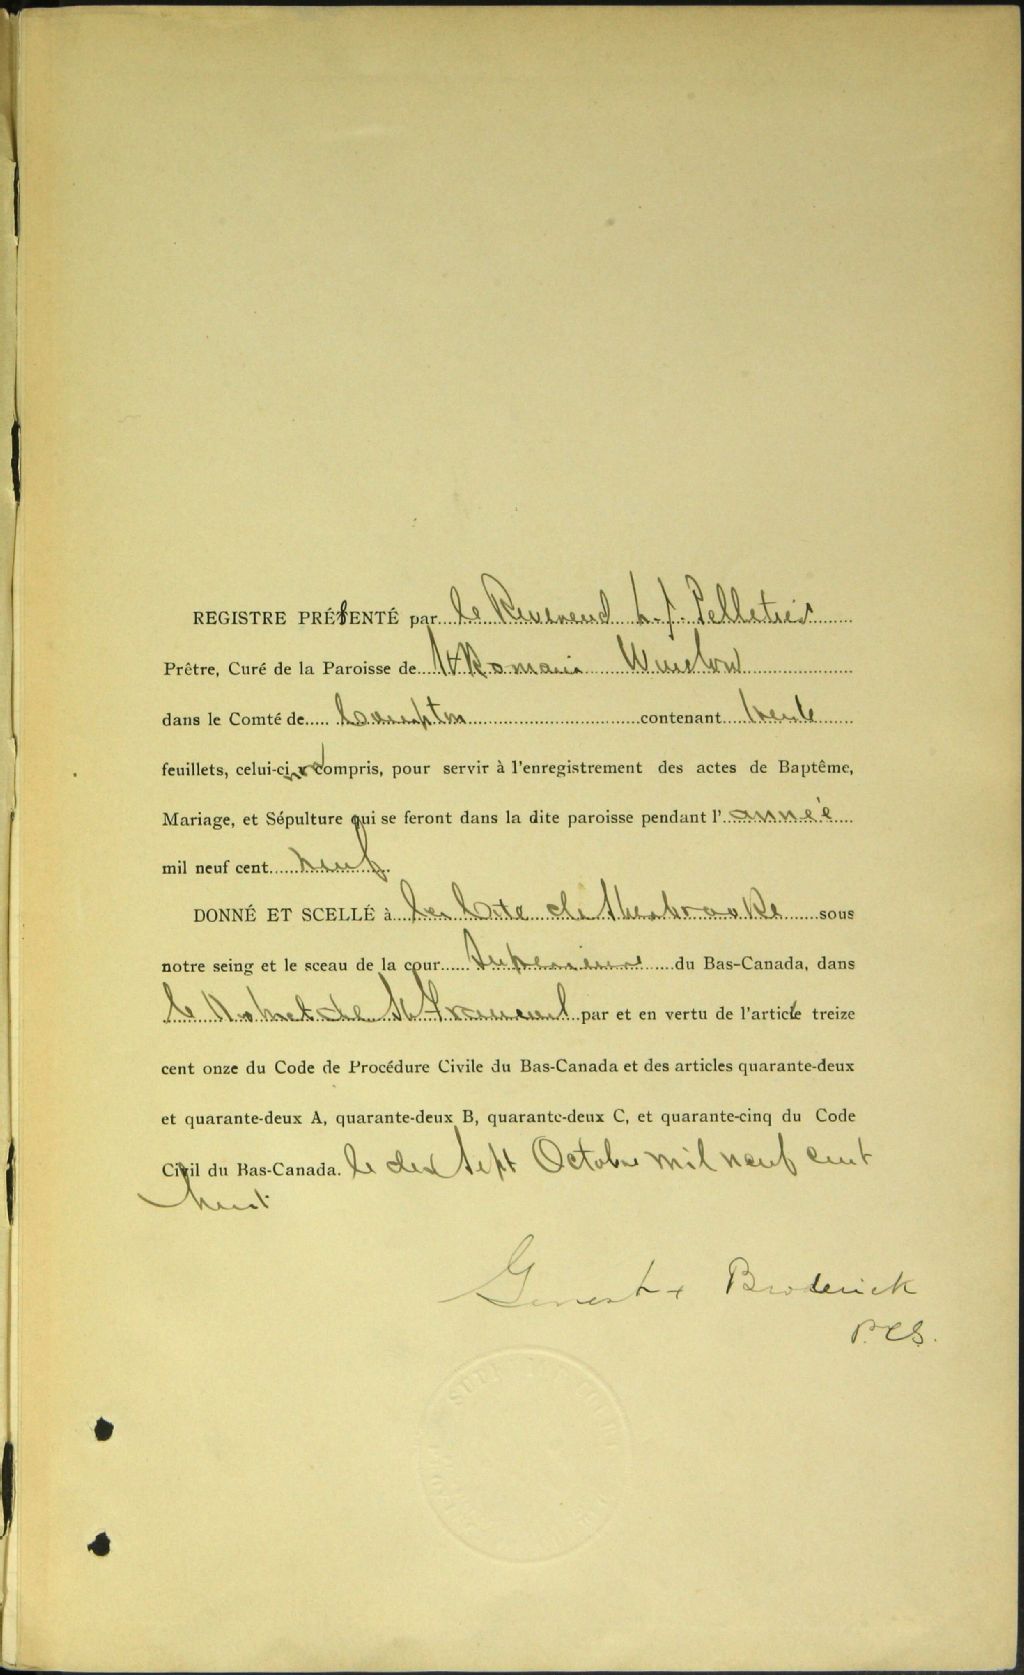 REGISTRE PRÉSENTÉ par le Reverend L. J. Pelletier
Prêtre, Curé de la Paroisse de St Romain Winslow
dans le Comté de Compton contenant trente
feuillets, celui-ci non compris, pour servir à l'enregistrement des actes de Baptême,
Mariage, et Sépulture qui se feront dans la dite paroisse pendant l'année
mil neuf cent neuf.
DONNÉ ET SCELLÉ à la Cité de Sherbrooke sous
notre seing et le sceau de la cour Superieure du Bas-Canada, dans
le District de St Francois par et en vertu de l'article treize
cent onze du Code de Procédure Civile du Bas-Canada et des articles quarante-deux
et quarante-deux A, quarante-deux B, quarante-deux C, et quarante-cinq du Code
Civil du Bas-Canada. le dix sept Octobre mil neuf cent
huit
Genest & Broderick
P.C.S.